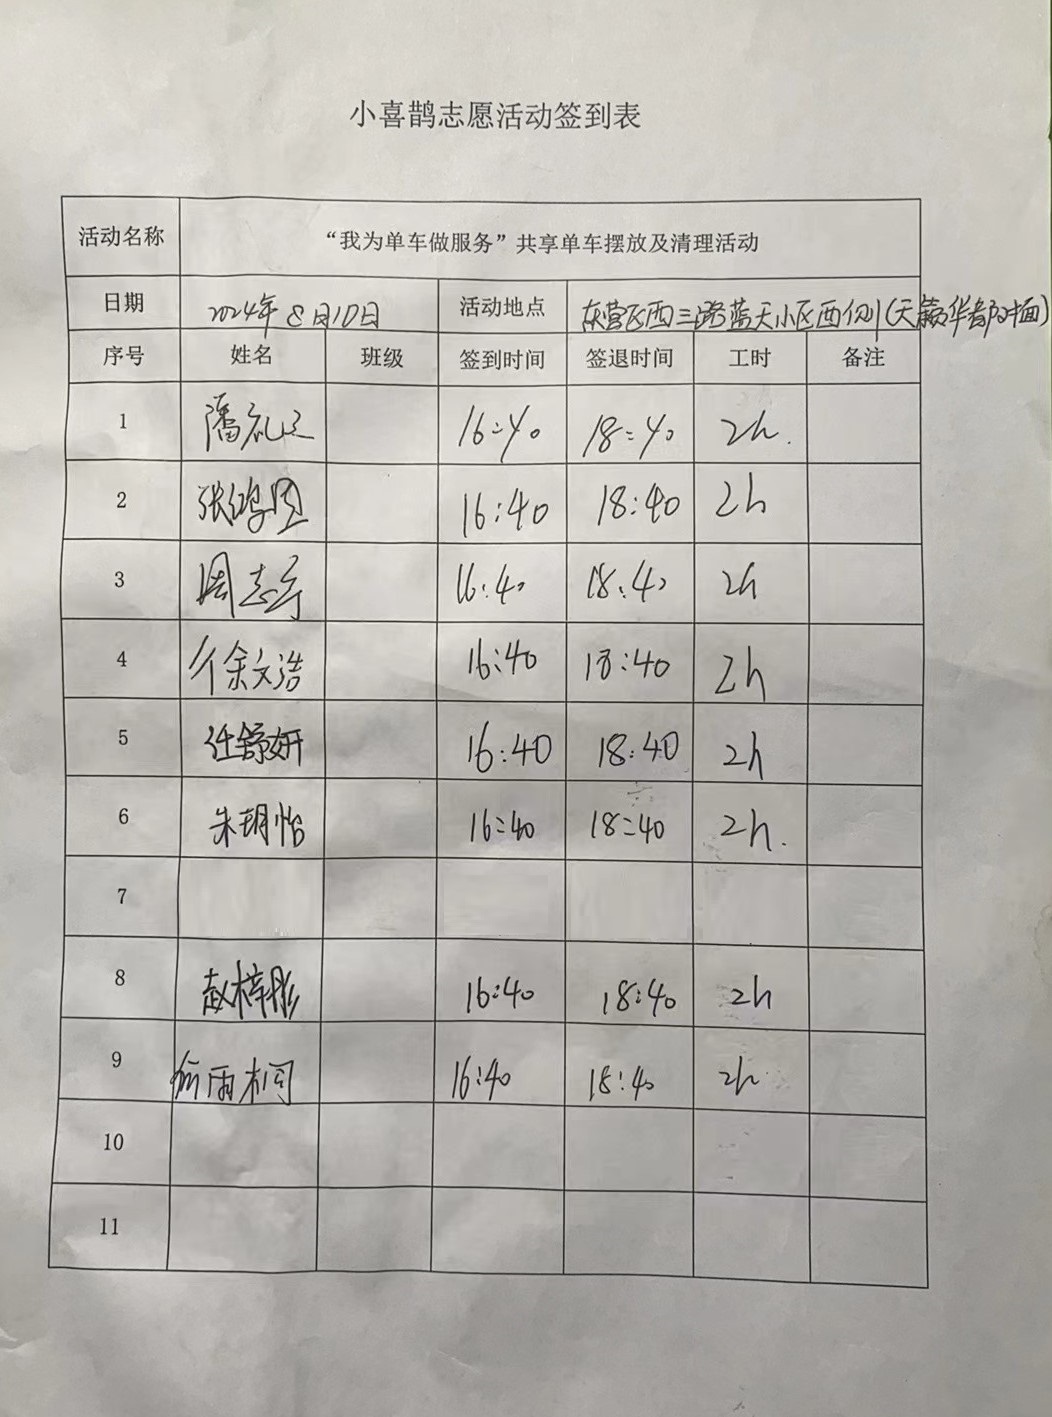 小喜鹊志愿活动签到表
活动名称 “我为单车做服务”共享单车摆放及清理活动
日期 2024年8月10日 活动地点 东营区西三路蓝天小区西侧(天籁华都对面)
序号 姓名 班级 签到时间 签退时间 工时 备注
1 潘礼 16:40 18:40 2h.
2 张鸿图 16:40 18:40 2h
3 周志宇 16:40 18:40 2h
4 徐文浩 16:40 18:40 2h
5 任舒妍 16:40 18:40 2h
6 朱玥怡 16:40 18:40 2h.
7
8 赵梓彤 16:40 18:40 2h
9 雨桐 16:40 18:40 2h
10
11